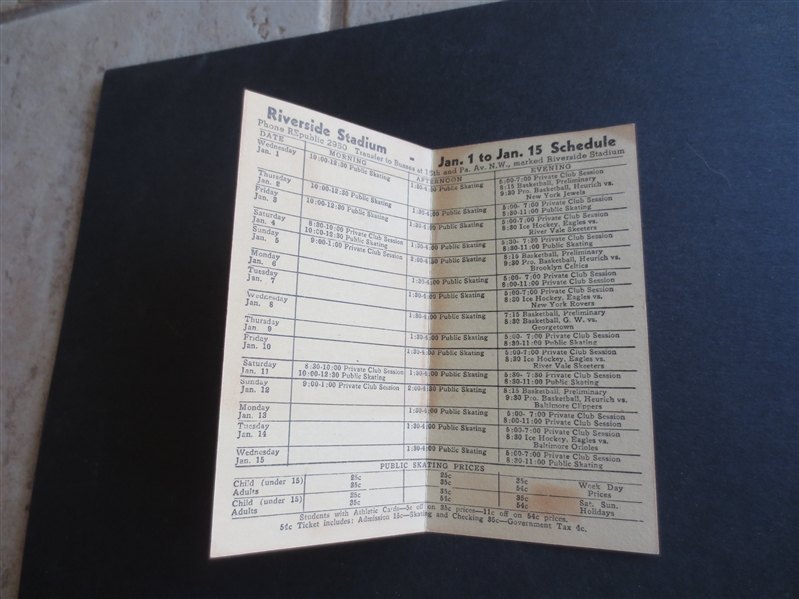 Riverside Stadium - Jan. 1 to Jan. 15 Schedule
Phone REpublic 2950 Transfer to Busses at 10th and Pa. Av. N.W., marked Riverside Stadium
DATE MORNING AFTERNOON EVENING
Wednesday 10:00-12:30 Public Skating 1:30-4:30 Public Skating 5:00-7:00 Private Club Session
Jan. 1 8:15 Basketball, Preliminary
9:30 Pro. Basketball, Heurich vs.
New York Jewels
Thursday 10:00-12:30 Public Skating 1:30-4:00 Public Skating 5:00- 7:00 Private Club Session
Jan. 2 8:30-11:00 Public Skating
Friday 10:00-12:30 Public Skating 1:30-4:00 Public Skating 5:00-7:00 Private Club Session
Jan. 3 8:30 Ice Hockey, Eagles vs.
River Vale Skeeters
Saturday 8:30-10:00 Private Club Session 1:30-4:00 Public Skating 5:30- 7:30 Private Club Session
Jan. 4 10:00-12:30 Public Skating 8:30-11:00 Public Skating
Sunday 9:00-1:00 Private Club Session 2:00-4:30 Public Skating 8:15 Basketball, Preliminary
Jan. 5 9:30 Pro. Basketball, Heurich vs.
Brooklyn Celtics
Monday 1:30-4:00 Public Skating 5:00- 7:00 Private Club Session
Jan. 6 8:00-11:00 Private Club Session
Tuesday 1:30-4:00 Public Skating 5:00-7:00 Private Club Session
Jan. 7 8:30 Ice Hockey, Eagles vs.
New York Rovers
Wednesday 1:30-4:00 Public Skating 7:15 Basketball, Preliminary
Jan. 8 8:30 Basketball, G. W. vs.
Georgetown
Thursday 1:30-4:00 Public Skating 5:00- 7:00 Private Club Session
Jan. 9 8:30-11:00 Public Skating
Friday 1:30-4:00 Public Skating 5:00-7:00 Private Club Session
Jan. 10 8:30 Ice Hockey, Eagles vs.
River Vale Skeeters
Saturday 8:30-10:00 Private Club Session 1:30-4:00 Public Skating 5:30- 7:30 Private Club Session
Jan. 11 10:00-12:30 Public Skating 8:30-11:00 Public Skating
Sunday 9:00-1:00 Private Club Session 2:00-4:30 Public Skating 8:15 Basketball, Preliminary
Jan. 12 9:30 Pro. Basketball, Heurich vs.
Baltimore Clippers
Monday 1:30-4:00 Public Skating 5:00- 7:00 Private Club Session
Jan. 13 8:00-11:00 Private Club Session
Tuesday 1:30-4:00 Public Skating 5:00-7:00 Private Club Session
Jan. 14 8:30 Ice Hockey, Eagles vs.
Baltimore Orioles
Wednesday 1:30-4:00 Public Skating 5:00-7:00 Private Club Session
Jan. 15 8:30-11:00 Public Skating
PUBLIC SKATING PRICES
Child (under 15) 25c 25c 25c Week Day
Adults 35c 35c 54c Prices
Child (under 15) 25c 25c 35c Sat. Sun.
Adults 35c 54c 54c Holidays
Students with Athletic Cards—5c off on 35c prices—11c off on 54c prices.
54c Ticket includes: Admission 15c—Skating and Checking 35c—Government Tax 4c.